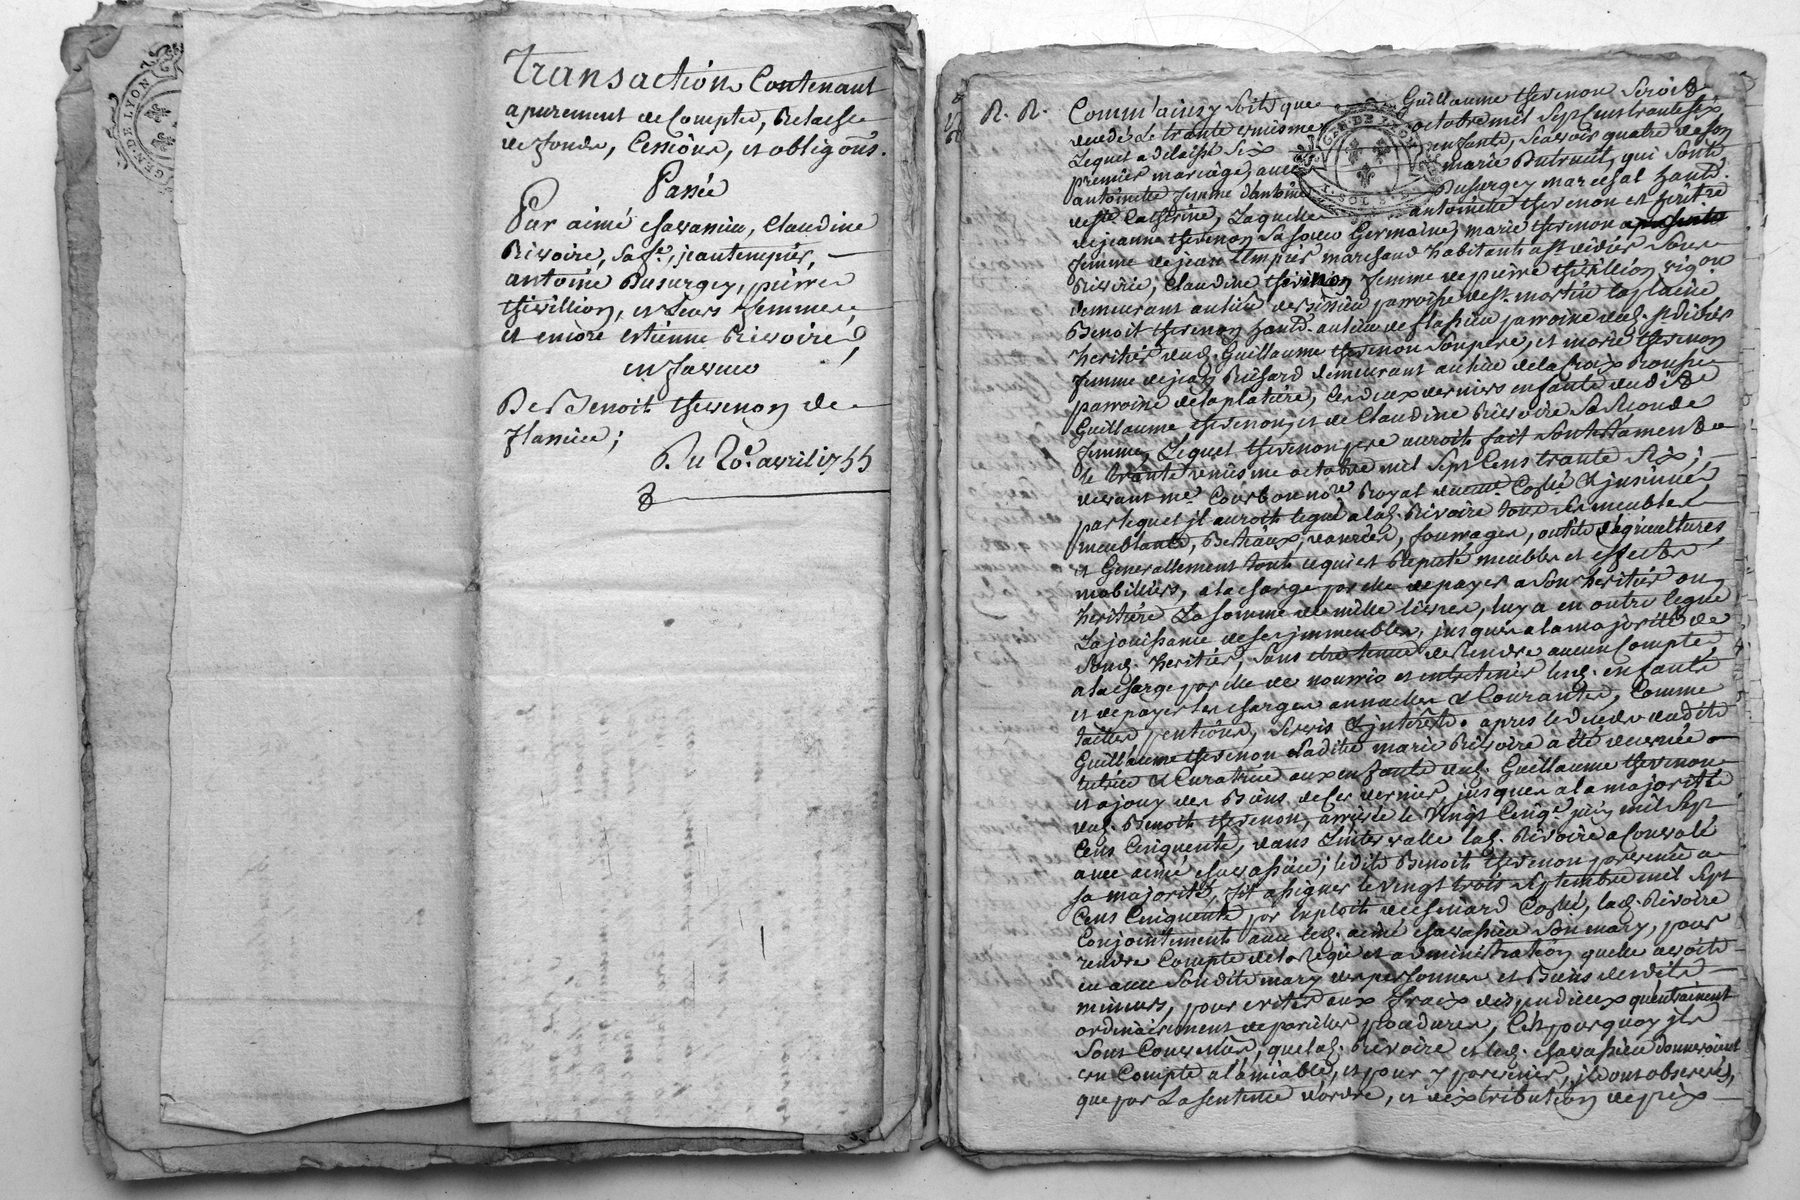 GEN·DE LYON
Transaction Contenant
apurement de Compte, Relasse
de fonds, Cessions, et obligons.
Passée
Par aimé chavassieu, Claudine
Rivoire, sa fe, jean tempier,
antoine Dusurgey, pierre
thevillion, et Leurs femmes
et encore estienne Rivoire,
en faveur
De Benoit thevenon de
flassieu;
Du 20e avril 1755
R. R. Comm' ainsy soit que Guillaume thevenon seroit
decedé le trante uniesme octobre mil sept Cens trante six
Lequel a delaissé six enfants, scavoir quatre de son
premier mariage avec marie Dutreuil, qui sont
antoinette femme d'antoine Dusurgey marechal
de ste Catherine, Laquelle antoinette thevenon est heritre
de jeanne thevenon sa soeur Germaine, marie thevenon
femme de jean tempier marchand habitant a st didier sous
Riverie, Claudine thevenon femme de pierre thevillion vigon
demeurant au lieu de parroisse de st martin la plaine
Benoit thevenon au lieu de flassieu parroisse dud. st didier
heritier dud. Guillaume thevenon son pere, et marie thevenon
femme de jean Richard demeurant au lieu de la Croix Rousse
parroisse de la platiere, Ces deux derniers enfants dudit
Guillaume thevenon et de Claudine Rivoire sa seconde
femme, Lequel thevenon pere auroit fait son testament
le trante uniesme octobre mil sept Cens trante six,
devant me Courbon nore Royal
par lequel il auroit legué a lad. Rivoire tous ses meubles
meublants, Bestiaux, danrées, fourrages, outils d'agricultures
et Generallement tout ce qui est Reputé meubles et effects
mobilliers, a la charge par elle de payer a son heritier ou
heritiere La somme de mille livres, luy a en outre legué
La jouissance de ses immeubles, jusques a la majorité de
sond. heritier, sans etre tenue de Rendre aucun Compte,
a la charge par elle de nourrir et entretenir lesd. enfants
et de payer les charges annuelles & Courantes, Comme
tailles pentions, servis & interets. apres le deceds dudit
Guillaume thevenon Ladite marie Rivoire a été decernée
tutrice & Curatrice aux enfants dud. Guillaume thevenon
et a jouy des Biens de Ces dernier, jusques a la majorité
dud. Benoit thevenon, arrivée le vingt Cinqe juin mil sept
Cens Cinquente, dans L'intervalle lad. Rivoire a Convolé
avec aimé chavassieu; ledit Benoit thevenon parvenu a
sa majorité, fit assigner le vingt trois septembre mil sept
Cens Cinquente par Exploit de lad. Rivoire
Conjointement avec led. aimé chavassieu son mary, pour
rendre Compte de la Regie et administration quelle avoit
eu avec sondit mary des personnes et Biens desdits
mineurs, pour eviter aux fraix dispendieux quentrainent
ordinairement de pareilles procedures, C'est pourquoy ils
sont Convenus, que lad. Rivoire et led. chavassieu donneroient
un Compte a lamiable, et pour y parvenir, ils ont observé,
que par La sentence d'ordre, et distribution de prix